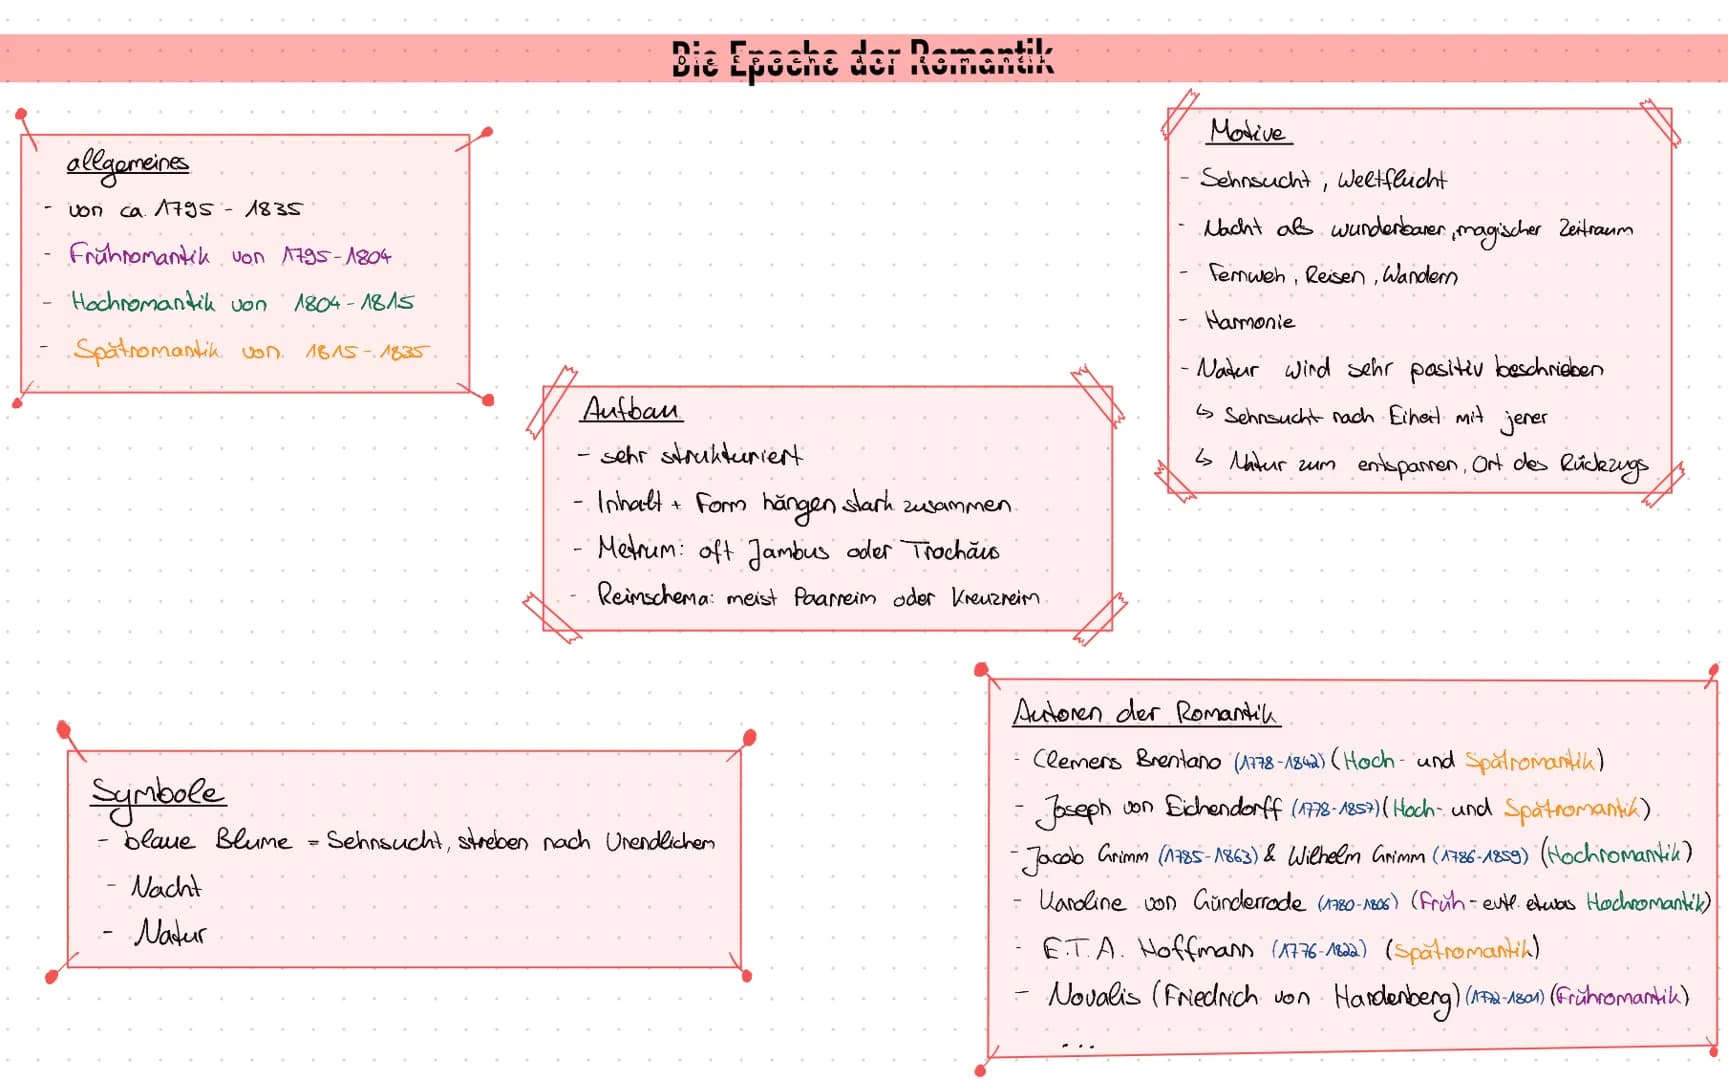 Die Epoche der Romantik
allgemeines
- von ca. 1795 - 1835
- Frühromantik von 1795-1804
- Hochromantik von 1804-1815
- Spätromantik von 1815-1835
Motive
- Sehnsucht, Weltflucht
- Nacht als wunderbarer, magischer Zeitraum
- Fernweh, Reisen, Wandern
- Harmonie
- Natur wird sehr positiv beschrieben
↳ Sehnsucht nach Eiheit mit jener
↳ Natur zum entspannen, Ort des Rückzugs
Aufbau
- sehr strukturiert
- Inhalt + Form hängen stark zusammen
- Metrum: oft Jambus oder Trochäus
- Reimschema: meist Paarreim oder Kreuzreim
Symbole
- blaue Blume = Sehnsucht, streben nach Unendlichem
- Nacht
- Natur
Autoren der Romantik
- Clemens Brentano (1778-1842) (Hoch- und Spätromantik)
- Joseph von Eichendorff (1778-1857) (Hoch- und Spätromantik)
- Jacob Grimm (1785-1863) & Wilhelm Grimm (1786-1859) (Hochromantik)
- Karoline von Günderrode (1780-1806) (Früh- evtl. etwas Hochromantik)
- E.T.A. Hoffmann (1776-1822) (Spätromantik)
- Novalis (Friedrich von Hardenberg) (1772-1801) (Frühromantik)
...